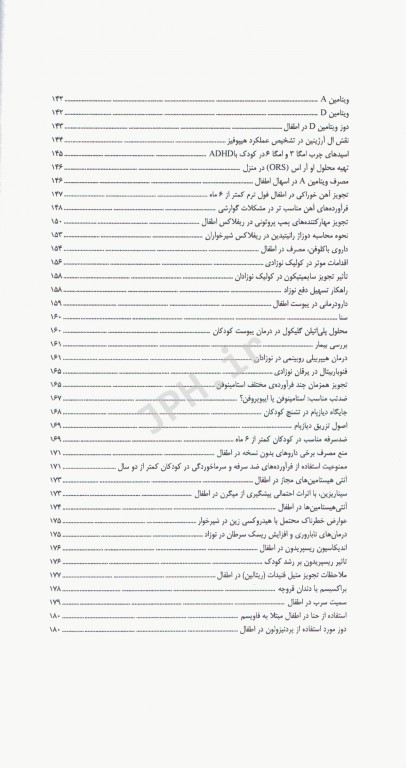 ویتامین A ........ ۱۴۲
ویتامین D ........ ۱۴۲
دوز ویتامین D در اطفال ........ ۱۴۳
نقش ال آرژینین در تشخیص عملکرد هیپوفیز ........ ۱۴۴
اسیدهای چرب امگا ۳ و امگا ۶ در کودک با ADHD ........ ۱۴۵
تهیه محلول او آر اس (ORS) در منزل ........ ۱۴۶
مصرف ویتامین A در اسهال اطفال ........ ۱۴۶
تجویز آهن خوراکی در اطفال فول ترم کمتر از ۶ ماه ........ ۱۴۷
فرآورده‌های آهن مناسب تر در مشکلات گوارشی ........ ۱۴۸
تجویز مهارکننده‌های پمپ پروتونی در ریفلاکس اطفال ........ ۱۵۰
نحوه محاسبه دوزاژ رانیتیدین در ریفلاکس شیرخواران ........ ۱۵۳
داروی باکلوفن، مصرف در اطفال ........ ۱۵۴
اقدامات موثر در کولیک نوزادی ........ ۱۵۶
تأثیر تجویز سایمتیکون در کولیک نوزادان ........ ۱۵۸
راهکار تسهیل دفع نوزاد ........ ۱۵۸
دارودرمانی در یبوست اطفال ........ ۱۵۹
سنا ........ ۱۶۰
محلول پلی‌اتیلن گلیکول در درمان یبوست کودکان ........ ۱۶۰
بررسی بیمار ........ ۱۶۱
درمان هیپربیلی روبینمی در نوزادان ........ ۱۶۱
فنوباربیتال در یرقان نوزادی ........ ۱۶۵
تجویز همزمان چند فرآورده‌ی مختلف استامینوفن ........ ۱۶۵
ضدتب مناسب: استامینوفن یا ایبوپروفن؟ ........ ۱۶۷
جایگاه دیازپام در تشنج کودکان ........ ۱۶۸
اصول تزریق دیازپام ........ ۱۶۹
ضدسرفه مناسب در کودکان کمتر از ۶ ماه ........ ۱۶۹
منع مصرف برخی داروهای بدون نسخه در اطفال ........ ۱۷۱
ممنوعیت استفاده از فرآورده‌های ضد سرفه و سرماخوردگی در کودکان کمتر از دو سال ........ ۱۷۱
آنتی هیستامین‌های مجاز در اطفال ........ ۱۷۳
سیناریزین، با اثرات احتمالی پیشگیری از میگرن در اطفال ........ ۱۷۳
آنتی‌هیستامین‌ها در اطفال ........ ۱۷۴
عوارض خطرناک محتمل با هیدروکسی زین در شیرخوار ........ ۱۷۵
درمان‌های ناباروری و افزایش ریسک سرطان در نوزاد ........ ۱۷۵
اندیکاسیون ریسپریدون در اطفال ........ ۱۷۶
تاثیر ریسپریدون بر رشد کودک ........ ۱۷۶
ملاحظات تجویز متیل فنیدات (ریتالین) در اطفال ........ ۱۷۷
براکسیسم یا دندان قروچه ........ ۱۷۸
سمیت سرب در اطفال ........ ۱۷۹
استفاده از حنا در اطفال مبتلا به فاویسم ........ ۱۸۰
دوز مورد استفاده از پردنیزولون در اطفال ........ ۱۸۰
JPH.ir